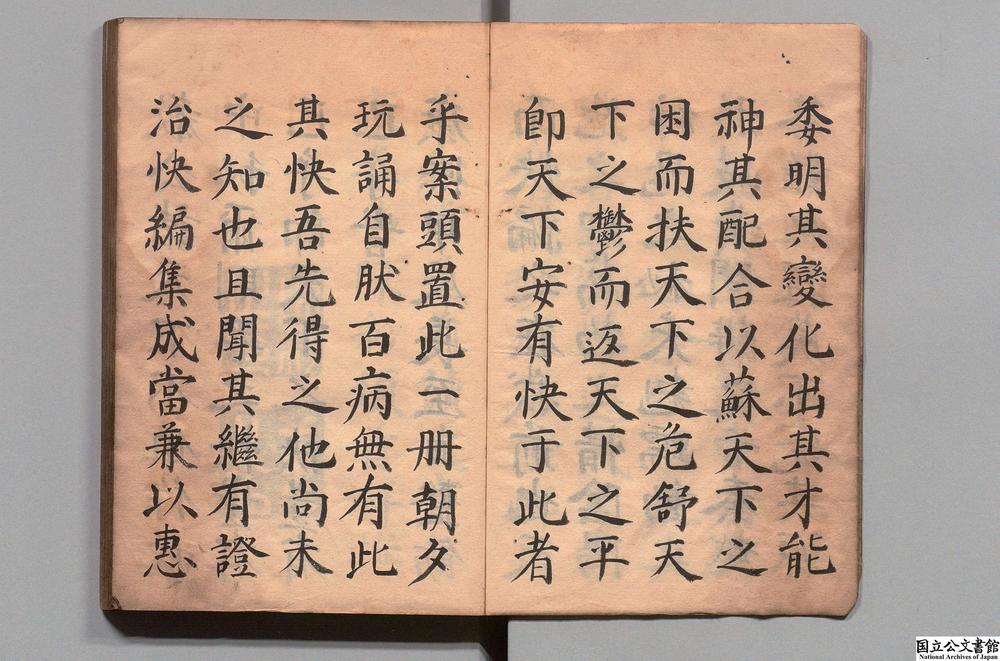 委明其變化出其才能
神其配合以蘇天下之
困而扶天下之危舒天
下之鬱而返天下之平
卽天下安有快于此者
乎案頭置此一册朝夕
玩誦自狀百病無有此
其快吾先得之他尚未
之知也且聞其繼有證
治快編集成當兼以惠
国立公文書館
National Archives of Japan